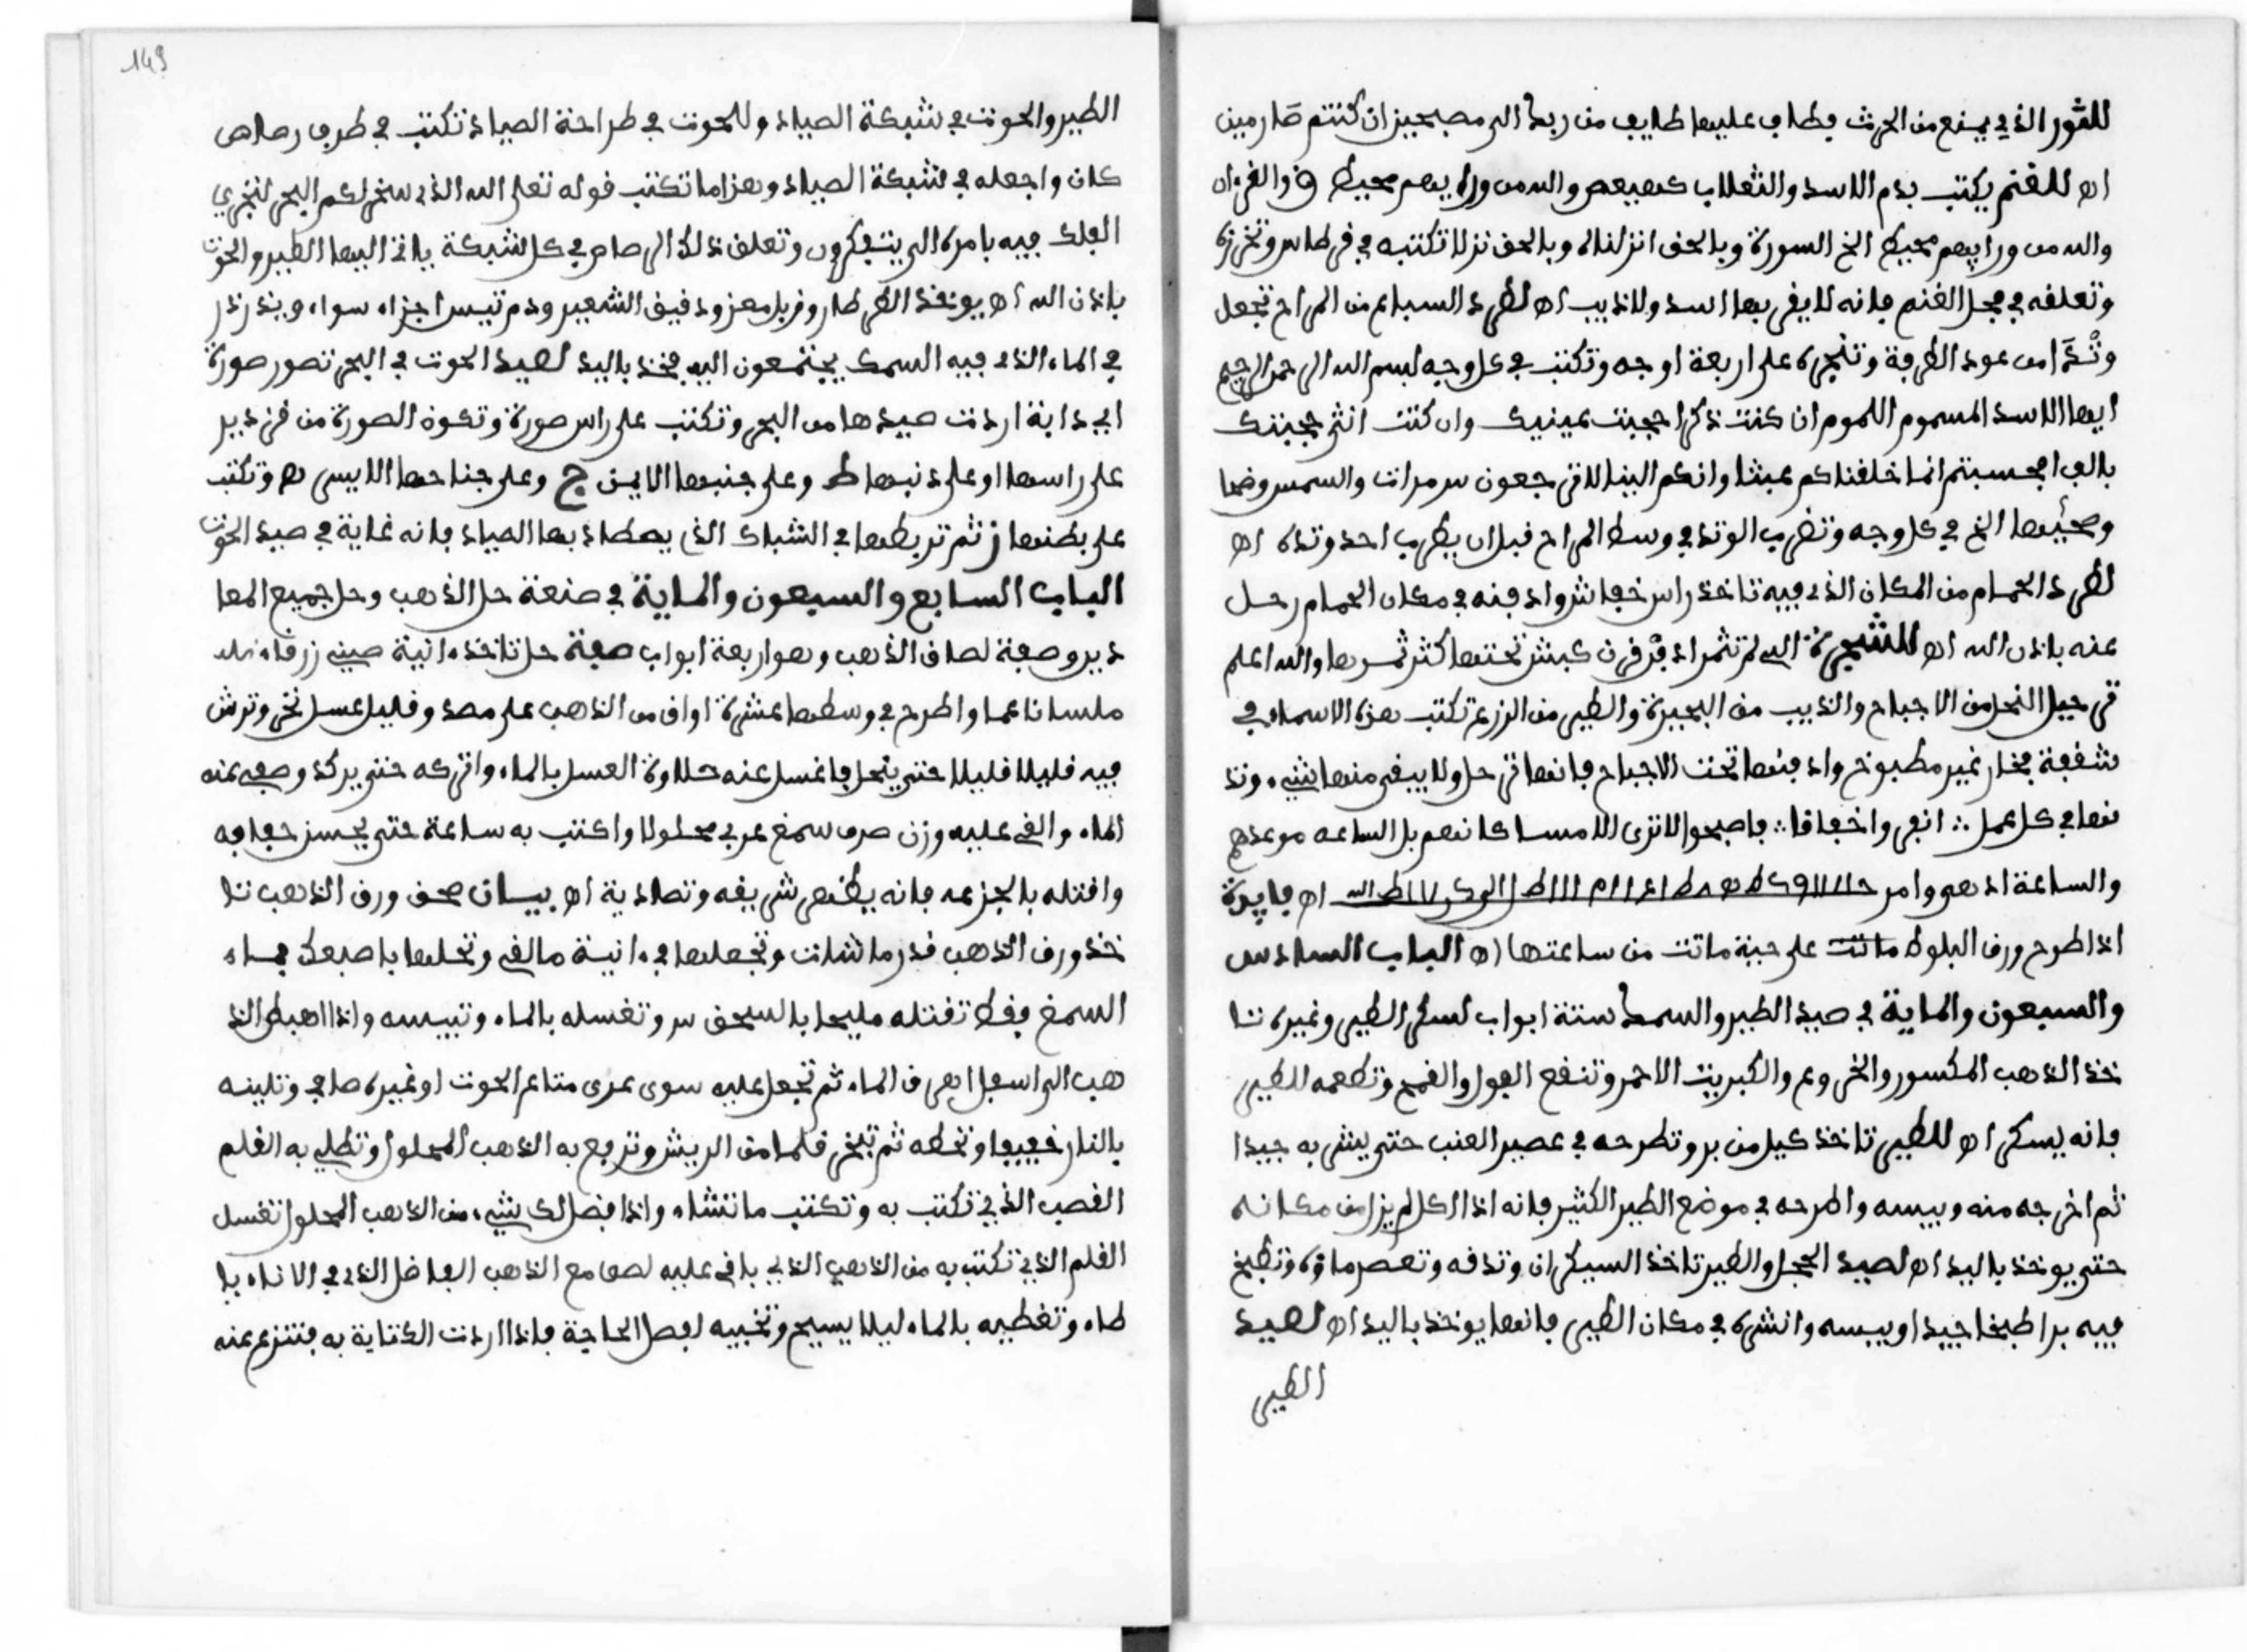 للثور الذي يمنع من الحرث فطاف عليها طايف من ربك الى مصبحين ان كنتم صارمين
اه للغنم يكتب بدم الاسد والثعلاب كهيعص والله من ورايهم محيط ق والقرءان
والله من ورايهم محيط الخ السورة وبالحق انزلناه وبالحق نزل تكتبه في قرطاس وتخرزه
وتعلقه في محل الغنم فانه لا يقربها اسد ولا ذيب اه لطرد السباع من المراح تجعل
وتدا من عود الطرفة وتنجره على اربعة اوجه وتكتب في كل وجه بسم الله الرحمن الرحيم
ايها الاسد المسموم اللموم ان كنت ذكرا حجبت عينيك وان كنت انثى حجبتك
بالف افحسبتم انما خلقناكم عبثا وانكم الينا لا ترجعون س مرات والشمس وضحا
وضحيها الخ في كل وجه وتضرب الوتد في وسط المراح قبل ان يضرب احد وتده اه
لطرد الحمام من المكان الذي فيه تاخذ راس خفاش وادفنه في مكان الحمام رحل
عنه باذن الله اه للشجرة التي لم تثمر ادفن قرن كبش تحتها كثر ثمرها والله اعلم
ترحيل النحل من الاجباح والذيب من البحيرة والطير من الزرع تكتب هذه الاسماء في
شقفة فخار غير مطبوخ وادفنها تحت الاجباح فانها ترحل ولا يبقى منها شيء وتد
فنها في كل عمل انفروا خفافا فاصبحوا لا ترى الا مساكنهم بل الساعة موعدهم
والساعة ادهى وامر اه فايدة
اذا طرح ورق البلوط ماتت على حية ماتت من ساعتها اه الباب السادس
والسبعون والماية في صيد الطير والسمك ستة ابواب لسكر الطير وغيره تا
خذ الذهب المكسور والخروع والكبريت الاحمر وتنقع الفول والقمح وتطعمه للطير
فانه يسكر اه للطير تاخذ كيل من بر وتطرحه في عصير العنب حتى ينش به جيدا
ثم اخرجه منه ويبسه واطرحه في موضع الطير الكثير فانه اذا اكل لم يزل من مكانه
حتى يوخذ باليد اه لصيد الحجل والطير تاخذ السيكران وتدقه وتعصر ماءه وتطبخ
فيه برا طبخا جيدا ويبسه وانشره في مكان الطير فانها يوخذ باليد اه لصيد
الطير
149
الطير والحوت في شبكة الصياد وللحوت في طراحة الصياد تكتب في طرف رصاص
كان واجعله في شبكة الصياد وهذا ما تكتب قوله تعلى الله الذي سخر لكم البحر لتجري
الفلك فيه بامره الى يتفكرون وتعلق ذلك الرصاص في كل شبكة ياتي اليها الطير والحوت
باذن الله اه يوخذ القرطار وفربل معز ودقيق الشعير ودم تيس اجزاء سواء ويندر ذر
في الماء الذي فيه السمك يجتمعون اليه فخذ باليد لصيد الحوت في البحر تصور صورة
اي دابة اردت صيدها من البحر وتكتب على راس صورة وتكون الصورة من قزدير
على راسها او على ذنبها ط وعلى جنبها الايمن ج وعلى جناحها الايسر ه وتكتب
على بطنها ز ثم تربطها في الشباك الذي يصطاد بها الصياد فانه غاية في صيد الحوت
الباب السابع والسبعون والماية في صنعة حل الذهب وحل جميع المعا
دير وصفة لصاق الذهب وهو اربعة ابواب صفة حل تاخذ ءانية صيني زرقاء
ملسا ناعما واطرح في وسطها عشرة اواق من الذهب على مهد وقليل عسل نحر وترش
فيه قليلا قليلا حتى ينحل فاغسل عنه حلاوة العسل بالماء واتركه حتى يركد وصفي عنه
الماء والقي عليه وزن صرف سمغ عربي محلولا واكتب به ساعة حتى يحسن جفافه
وافتله بالجزعه فانه يظهر شريقه وتصادية اه بيان صحف ورق الذهب تا
خذ ورق الذهب قدر ما شات وتجعلها في ءانية مالقي وتحلها باصبعك بماء
السمغ فقط تفتله مليحا بالسحق س وتغسله بالماء وتيبسه واذا اهبط الذ
هب الى اسفل اهرق الماء ثم تجعل عليه سوى غرى متاع الحوت او غيره صافي وتلينه
بالنار خفيفا وتخطه ثم تبخر قلما من الريش وترفع به الذهب المحلول وتطلي به القلم
القصب الذي تكتب به وتكتب ما تشاء واذا فضل لك شيء من الذهب المحلول تغسل
القلم الذي تكتب به من الذهب الذي باقي عليه لصق مع الذهب الفاضل الذي في الاناء با
طاه وتغطيه بالماء ليلا يسيح وتخبيه لفصل الحاجة فاذا اردت الكتابة به فتنزع عنه